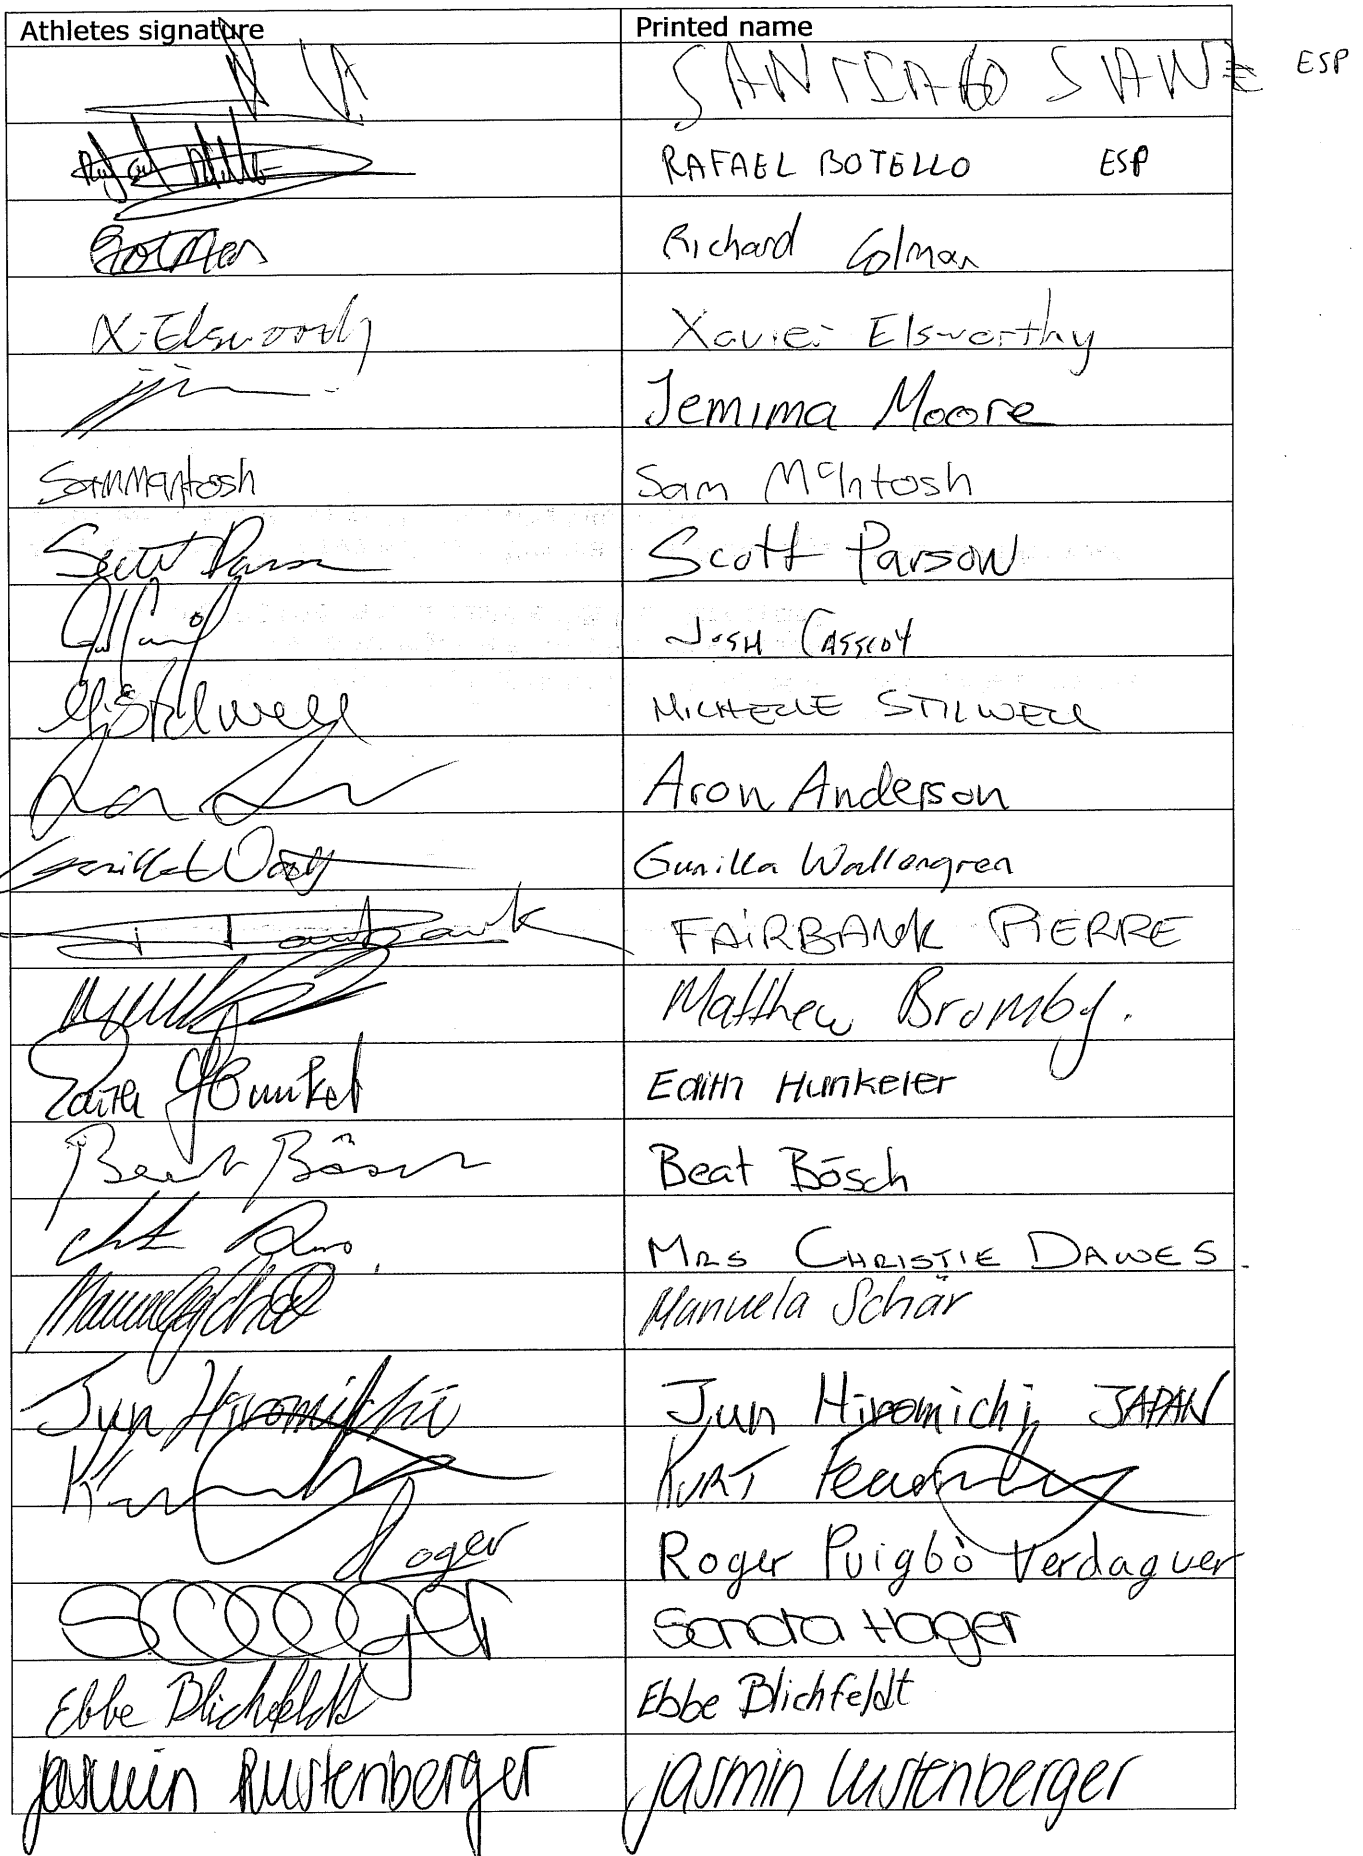 Athletes signature Printed name
SANTIAGO SANZ ESP
Rafael Botello RAFAEL BOTELLO ESP
Colman Richard Colman
X. Elsworthy Xavier Elsworthy
Jemima Moore
Sam McIntosh Sam McIntosh
Scott Parson Scott Parson
JOSH CASSIDY
M Stilwell MICHELLE STILWELL
Aron Anderson
Gunilla Wallengren
Fairbank FAIRBANK PIERRE
Matthew Bromby.
Edith Hunkel Edith Hunkeler
Beat Bösch Beat Bösch
MRS CHRISTIE DAWES.
Manuela Schär Manuela Schär
Jun Hiromichi Jun Hiromichi JAPAN
KURT
Roger Roger Puigbò Verdaguer
Hager
Ebbe Blichfeldt Ebbe Blichfeldt
jasmin Lustenberger jasmin Lustenberger